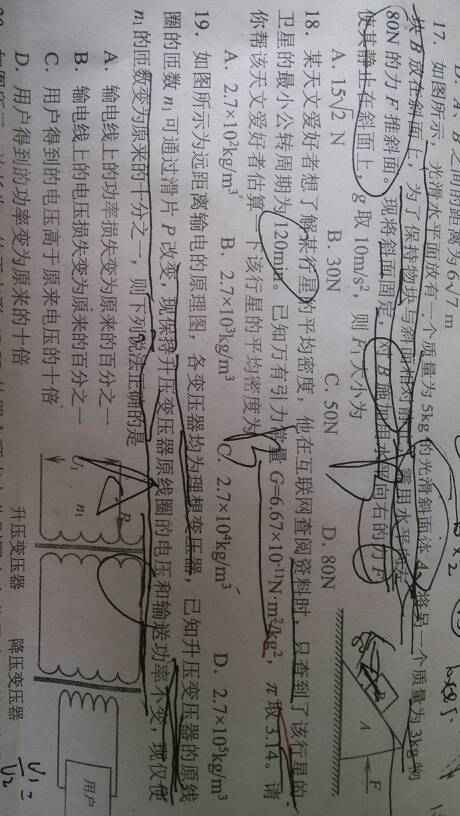 D. A、B之间的距离为6√7 m
17. 如图所示,光滑水平面放有一个质量为5kg的光滑斜面体A,将另一个质量为3kg物
块B放在斜面上,为了保持物块与斜面相对静止,需用水平向左
80N的力F推斜面。现将斜面固定,对B施加用水平向右的力F₁
使其静止在斜面上,g取10m/s²,则F₁大小为
A. 15√2 N B. 30N C. 50N D. 80N
A
B
F
18. 某天文爱好者想了解某行星的平均密度,他在互联网查阅资料时,只查到了该行星的
卫星的最小公转周期为120min。已知万有引力常量G=6.67×10⁻¹¹N·m²/kg²,π取3.14。请
你帮该天文爱好者估算一下该行星的平均密度为
A. 2.7×10²kg/m³ B. 2.7×10³kg/m³ C. 2.7×10⁴kg/m³ D. 2.7×10⁵kg/m³
19. 如图所示为远距离输电的原理图,各变压器均为理想变压器,已知升压变压器的原线
圈的匝数n₁可通过滑片P改变,现保持升压变压器原线圈的电压和输送功率不变,现仅使
n₁的匝数变为原来的十分之一,则下列说法正确的是
A. 输电线上的功率损失变为原来的百分之一
B. 输电线上的电压损失变为原来的百分之一
C. 用户得到的电压高于原来电压的十倍
D. 用户得到的功率变为原来的十倍
U₁
P
n₁
用户
升压变压器 降压变压器
U1
U2